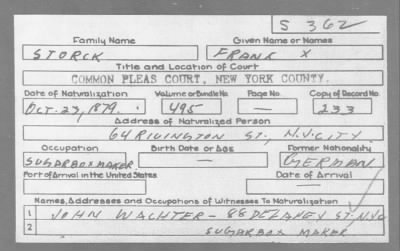 S 362
Family Name Given Name or Names
STORCK FRANK X
Title and Location of Court
COMMON PLEAS COURT, NEW YORK COUNTY.
Date of Naturalization Volume or Bundle No. Page No. Copy of Record No.
OCT. 23, 1879. 495 — 233
Address of Naturalized Person
64 RIVINGTON ST., N.Y. CITY
Occupation Birth Date or Age Former Nationality
SUGARBOXMAKER — GERMAN
Port of Arrival in the United States Date of Arrival
— —
Names, Addresses and Occupations of Witnesses To Naturalization
1 JOHN WACHTER — 88 DELANEY ST. N.Y.C
2 SUGARBOX MAKER